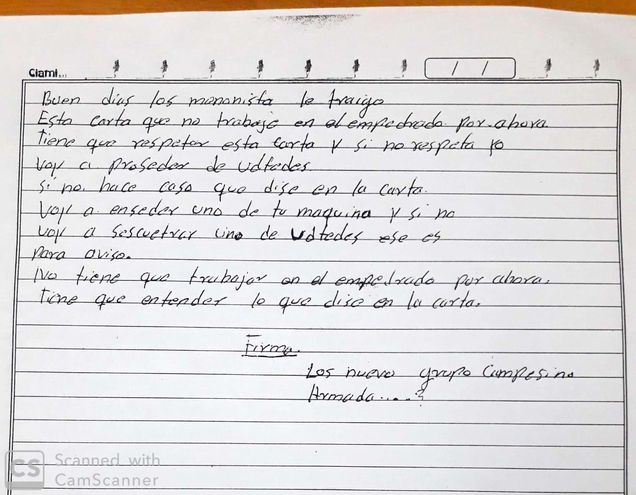 Ciami...
/ /
Buen dias los mononista le traigo
Esta carta que no trabaje en el empedrado por ahora
Tiene que respetar esta carta y si no respeta yo
voy a proseder de udtedes.
si no. hace caso que dise en la carta.
voy a enseder uno de tu maquina y si no
voy a sescuetrar uno de udtedes ese es
para aviso.
No tiene que trabajar en el empedrado por ahora.
Tiene que entender lo que dise en la carta.
Firma.
Los nuevo grupo Campesino
Armada....
CS Scanned with
CamScanner